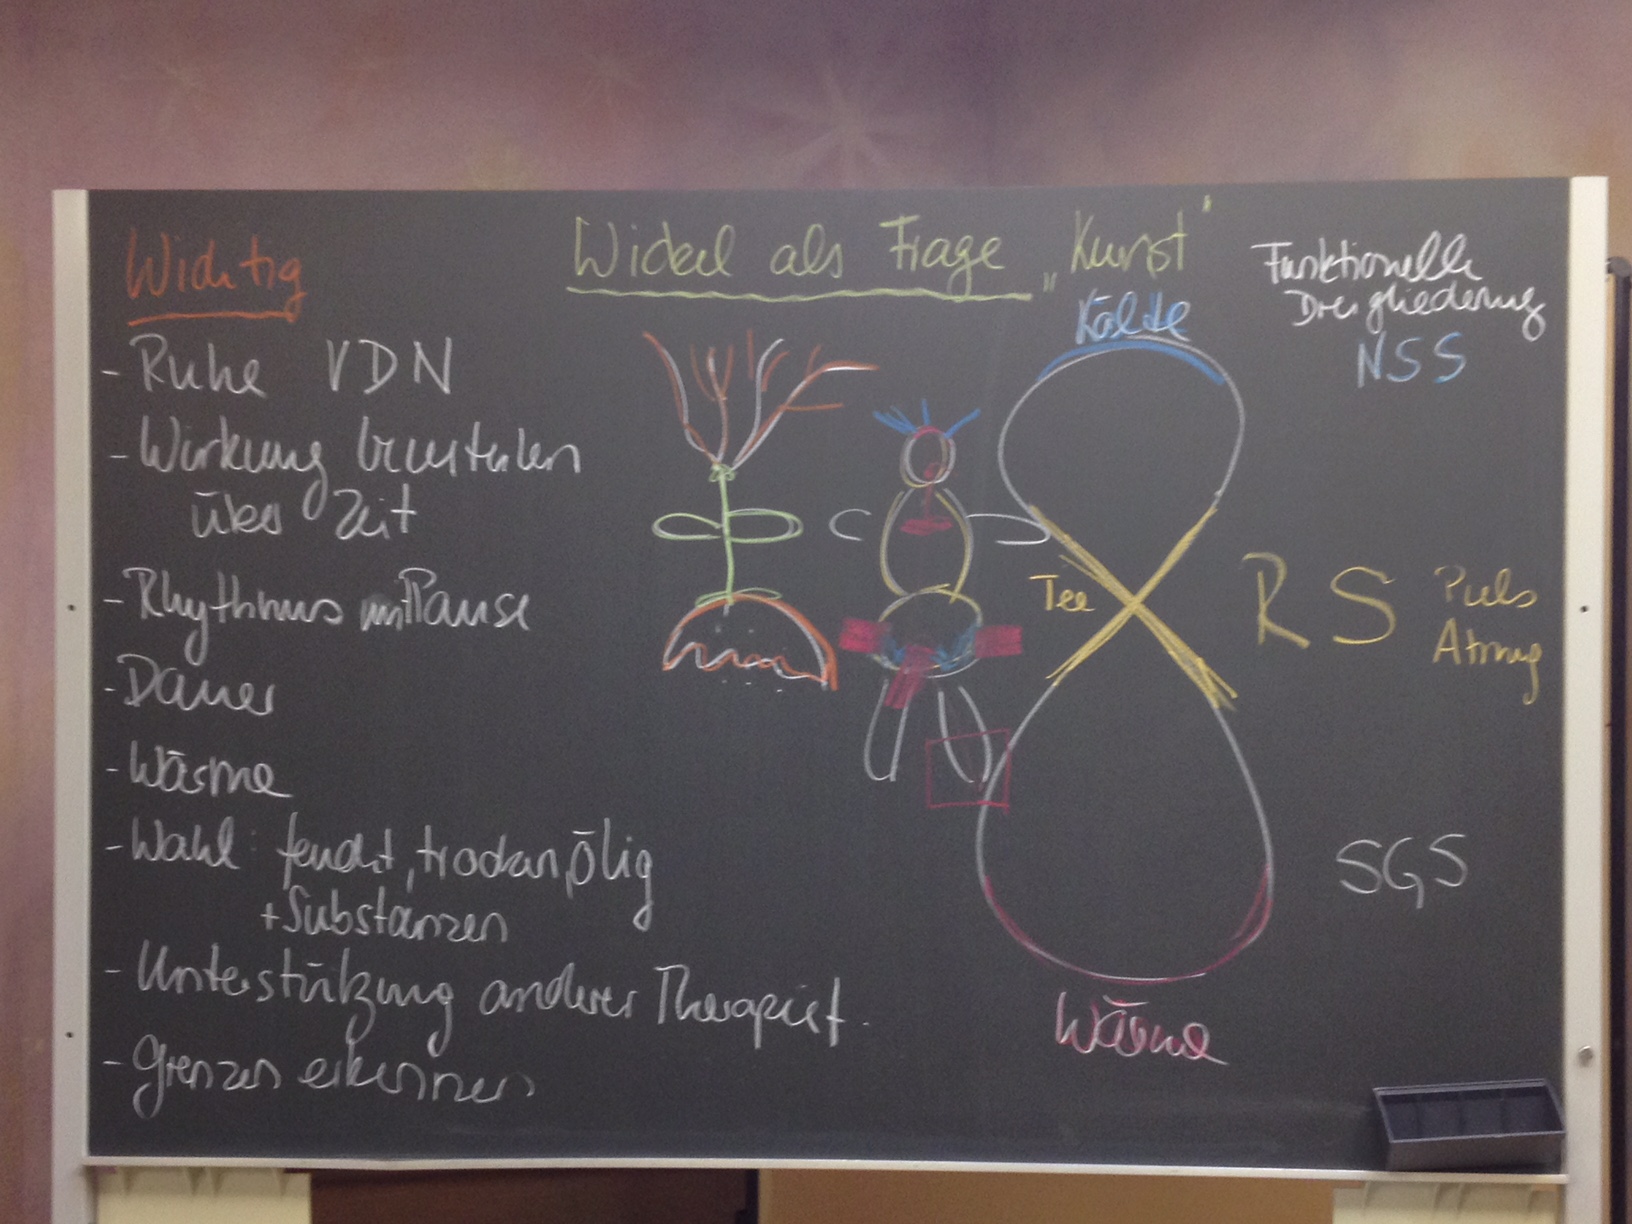 Wichtig
- Ruhe VDN
- Wirkung beurteilen
über Zeit
- Rhythmus mit Pause
- Dauer
- Wärme
- Wahl: feucht, trocken, ölig
+ Substanzen
- Unterstützung anderer Therapiet.
- Grenzen erkennen
Wickel als Frage „Kunst"
Kälte
Tee
Wärme
Funktionelle
Dreigliederung
NSS
RS Puls
Atmung
SGS